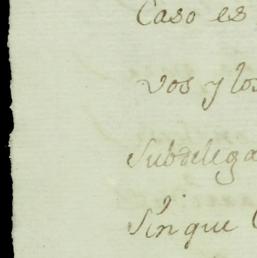 Caso es
vos y los
subdelega
sin que